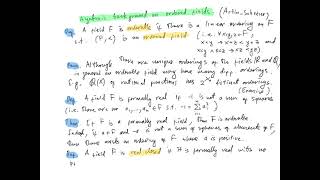 Algebraic background on ordered fields (Artin-Schreier)
Def. A field F is orderable if there is a linear ordering on F
s.t. (F,<) is an ordered field (i.e. ∀x,y,z∈F,
x<y → x+z < y+z and
Rem. Although there are unique orderings of the fields ℝ and ℚ
in general an orderable field may have many diff. orderings.
E.g. ℚ(X) of rational functions has 2^ℵ₀ distinct orderings.
(Exercise).
Def. A field F is formally real if -1 is not a sum of squares
(i.e. there are no a₁,…,aₙ∈F s.t. -1 = Σ aᵢ²)
Thm. If F is a formally real field, then F is orderable
Indeed, if a∈F and -a is not a sum of squares of elements of F,
then there exists an ordering of F where a is positive.
Def. A field F is real closed if it is formally real with no